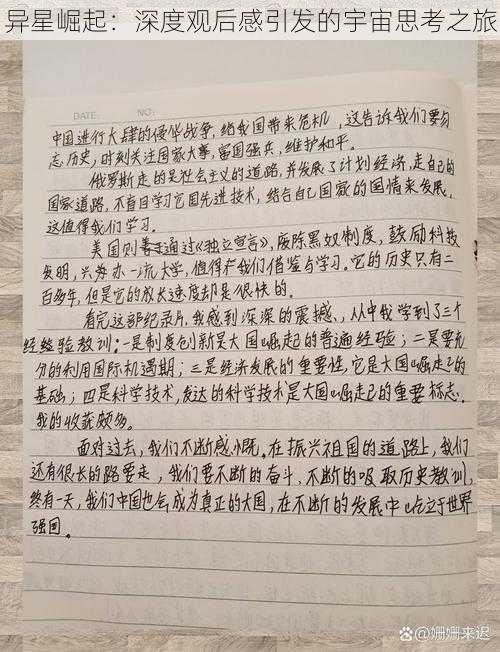 异星崛起：深度观后感引发的宇宙思考之旅
DATE: NO:
中国进行大肆的侵华战争，给我国带来危机，这告诉我们要勿
忘历史，时刻关注国家大事，富国强兵，维护和平。
俄罗斯走的是社会主义的道路，并发展了计划经济，走自己的
国家道路，不盲目学习它国先进技术，结合自己国家的国情来发展，
这值得我们学习。
美国则通过《独立宣言》，废除黑奴制度，鼓励科技
发明，兴办一流大学，值得我们借鉴与学习。它的历史只有二
百多年，但是它的成长速度却是很快的。
看完这部纪录片，我感到深深的震撼，从中我学到了三个
经验教训：一是制度创新是大国崛起的普遍经验；二是要充
分的利用国际机遇期；三是经济发展的重要性，它是大国崛起的
基础；四是科学技术，发达的科学技术是大国崛起的重要标志。
我的收获颇多。
面对过去，我们不断感慨。在振兴祖国的道路上，我们
还有很长的路要走，我们要不断的奋斗、不断的吸取历史教训，
终有一天，我们中国也会成为真正的大国，在不断的发展中屹立于世界
强国。
百家号@姗姗来迟